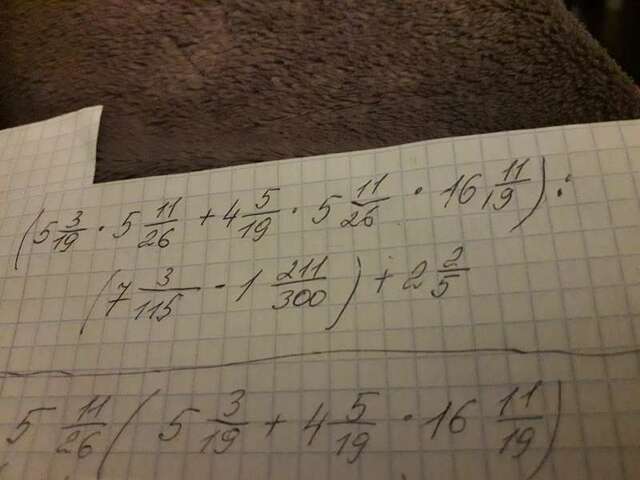 (5 3/19 · 5 11/26 + 4 5/19 · 5 11/26 · 16 11/19) :
(7 3/115 - 1 211/300) + 2 2/5
5 11/26 (5 3/19 + 4 5/19 · 16 11/19)